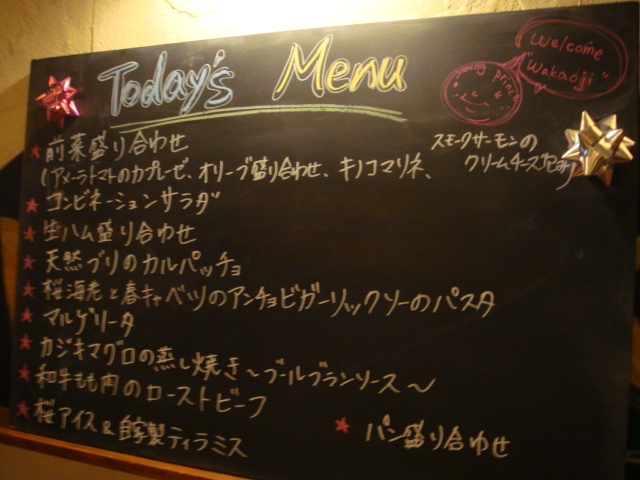 Today's Menu
Welcome
"Wakaoji"
young prince
前菜盛り合わせ
(アメーラトマトのカプレーゼ、オリーブ盛り合わせ、キノコマリネ、スモークサーモンの
クリームチーズ包み)
コンビネーションサラダ
生ハム盛り合わせ
天然ブリのカルパッチョ
桜海老と春キャベツのアンチョビガーリックソーのパスタ
マルゲリータ
カジキマグロの蒸し焼き〜ブールブランソース〜
和牛もも肉のローストビーフ
桜アイス&自家製ティラミス
パン盛り合わせ